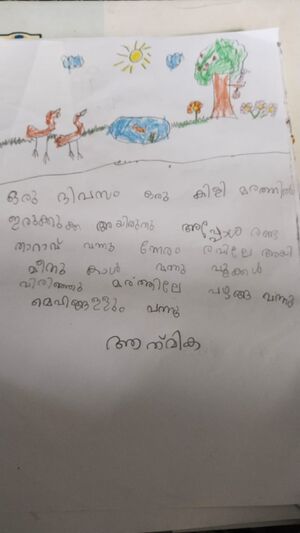 ഒരു ദിവസം ഒരു കിളി മരത്തിൽ
ഇരുക്കുക ആയിരുന്നു അപ്പോൾ രണ്ട
താറാവ് വന്നു നേരം രവിലേ ആയി
മീനു കൾ വന്നു പൂക്കൾ
വിരിഞ്ഞു മരത്തിലേ പഴങ്ങ വന്നു
മെഹിങ്ങളും വന്നു
ആത്മിക